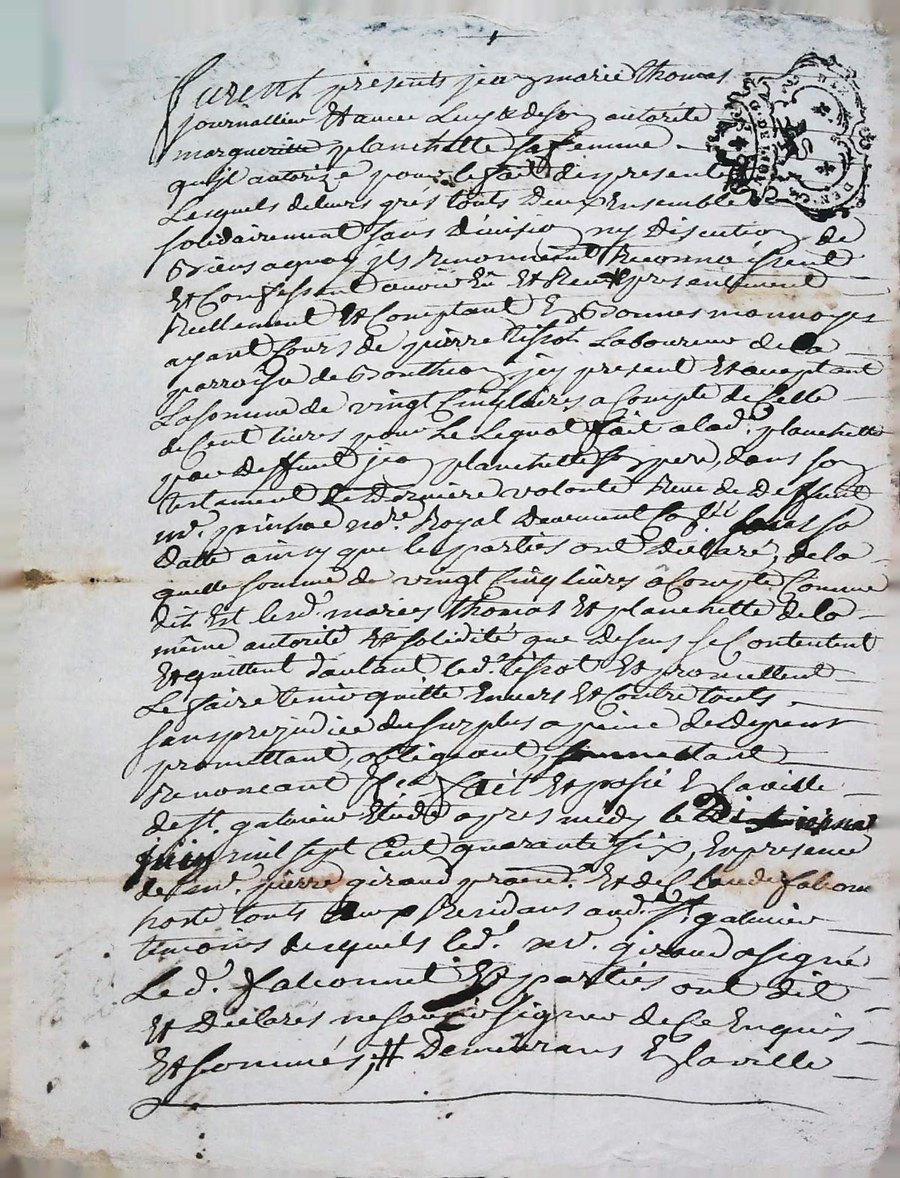 furent presents jean marie thomas
journallier Et avec Luy & de son autorité
margueritte planchette sa femme
quil autorize pour le fait des presentes
Lesquels de leurs grés touts Deux Ensemble
solidairement sans division ny Discution de
Biens a quoy ils Renoncent Reconnoissent
Et Confessent avoir Eu Et Receu presentement
Reellement Et Comptant En Bonnes monnoyes
ayant Cours de pierre tissot Laboureur de la
parroisse de Bontheon jcy present Et acceptant
La somme de vingt Cinq livres a Compte de Celle
de Cent livres pour Le Legat fait a lad.e planchette
par Deffunt jean planchette son pere, dans son
testament de Derniere volonté Receu de Deffunt
me. not.re Royal Duement sa
Datte ainsy que les parties ont Declaré, de la
quelle somme de vingt Cinq livres a Compte Comme
dit Est lesd. mariez thomas Et planchette de la
même autorité Et solidité que dessus se Contentent
Et quittent d'autant led. tissot Et promettent
Le faire tenir quitte Envers Et Contre touts
sans prejudice du surplus a peine de depens
promettant, obligeant, soumettant
Renoncant &ca fait Et passé En la ville
de st. galmier Etude apres midy le
juin mil sept Cent quarante six, En presence
de me. pierre giraud Et de Claude falconnet
hoste touts deux Residans aud. st. galmier
temoins desquels led. me. giraud a signé
Led. falconnet Et parties ont dit
Et Declarés ne sçavoir signer de Ce Enquis
Et sommés, # Demeurans En la ville
G. DE LYON